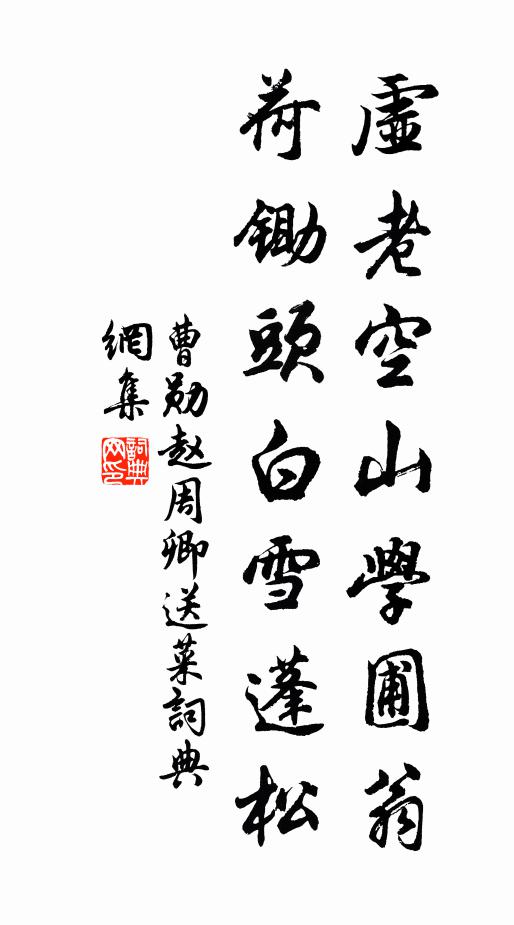 虛老空山學圃翁
荷鋤頭白雪蓬松
曹勛赵周卿送菜詞典
網集
詞典
网印